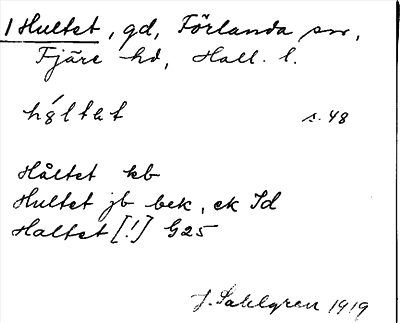 1 Hultet, gd, Förlanda sn,
Fjäre hd, Hall. l.
hóltət s. 48
Håltet kb
Hultet jb bek, ek Id
Haltet [!] G25
J. Sahlgren 1919